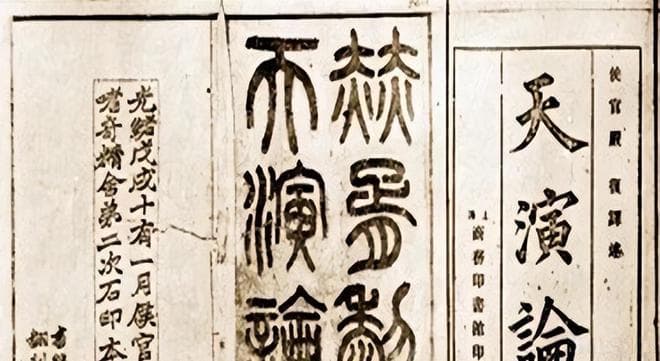 侯官嚴復譯述
天演論
上海
商務印書館印
赫胥黎
天演論
光緒戊戌十有一月侯官
嗜奇精舍弟二次石印本